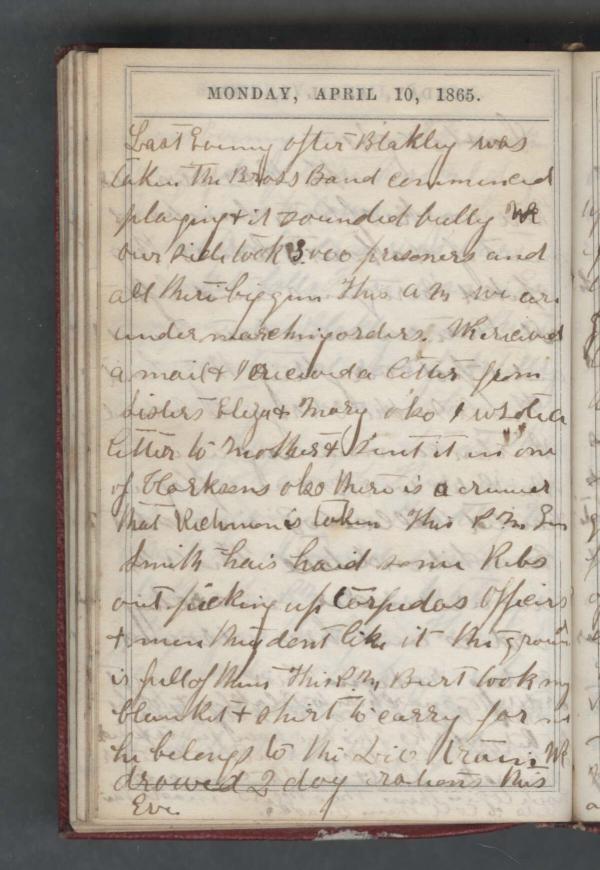 MONDAY, APRIL 10, 1865.
Last Evning after Blakley was
taken The Brass Band commenced
playing & it sounded bully We
our side took 3000 prisoners and
all their big guns This A M we are
under marching orders. We recieved
a mail & I recieved a letter from
Sisters Eliza & Mary also I wrote a
letter to Mother & Sent it in one
of Clarksens also there is a rumer
that Richmon is taken This P M Gen
Smith hais haid some Rebs
out picking up torpedos Officers
& men they dont like it the ground
is full of them This P M Burt took my
blanket & shirt to carry for me
he belongs to the Div train We
drawed 2 day rations this
Eve